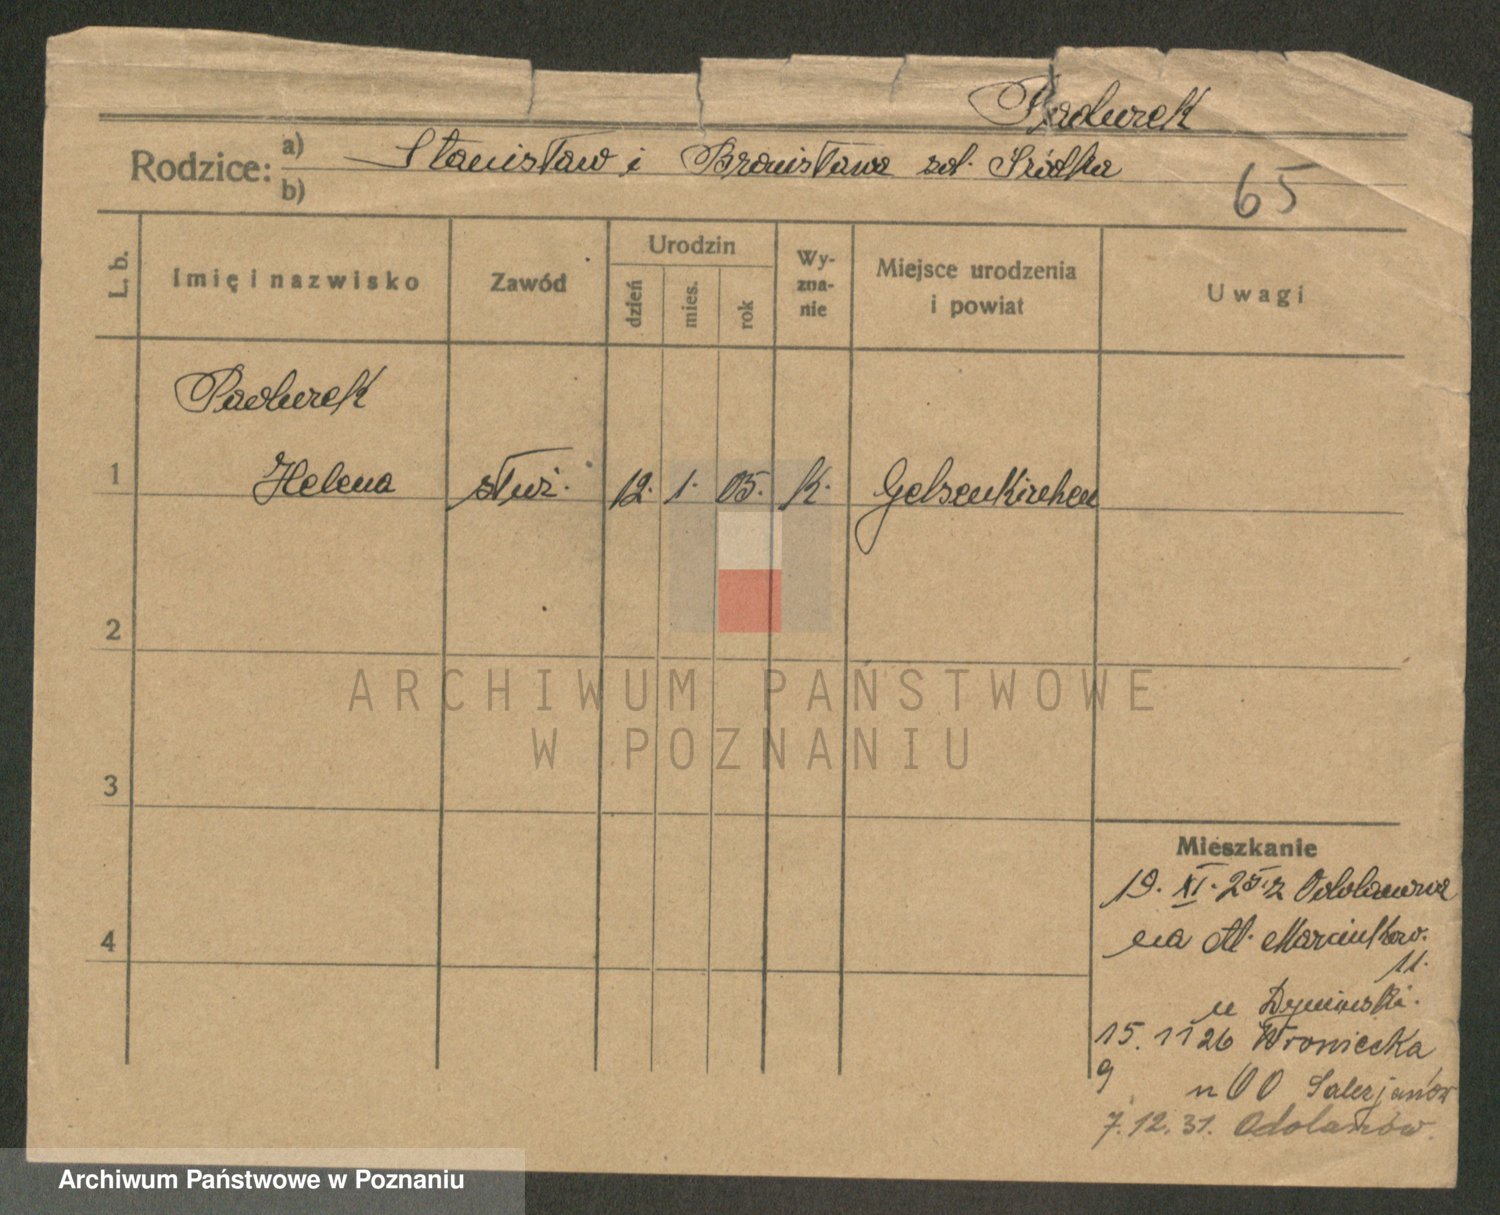 Padurek
Rodzice: a) Stanisław i Bronisława zd. Szódka
b)
65
L. b.
Imię i nazwisko
Zawód
Urodzin
dzień
mies.
rok
Wy-
zna-
nie
Miejsce urodzenia
i powiat
Uwagi
Padurek
1 Helena służ. 12. 1. 05. K. Gelsenkirchen
2
3
4
Mieszkanie
19. XI. 25. z Odolanowa
na Al. Marcinkow.
11.
u
15. 11 26 Wroniecka
9 u OO Salezjanów
7. 12. 31. Odolanów.
ARCHIWUM PAŃSTWOWE
W POZNANIU
Archiwum Państwowe w Poznaniu